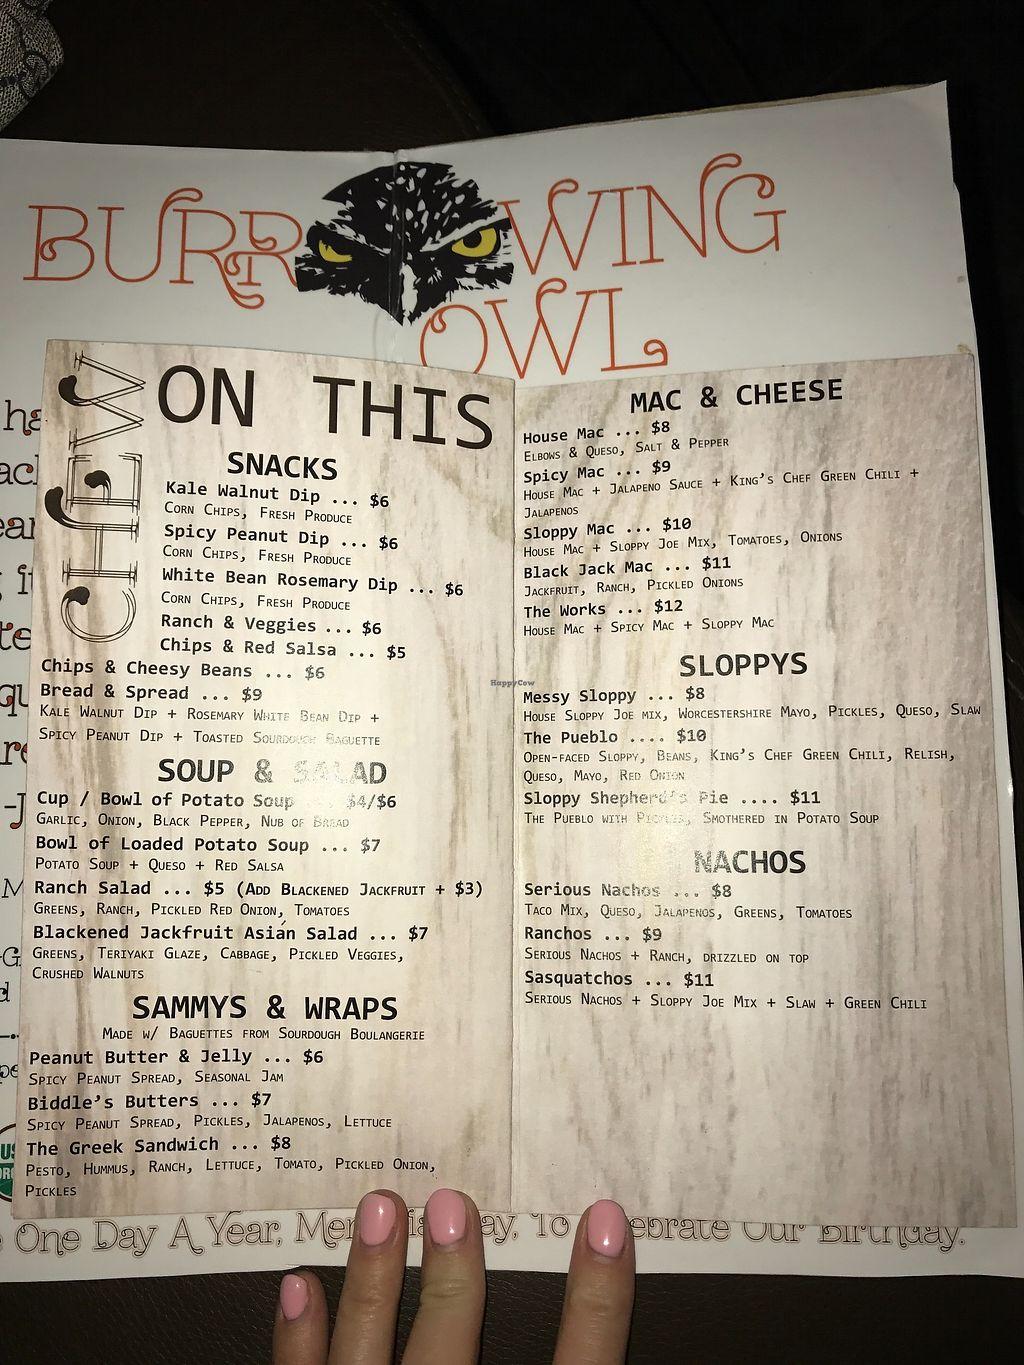 BURROWING
OWL
CHEW
ON THIS
SNACKS
Kale Walnut Dip ... $6
Corn Chips, Fresh Produce
Spicy Peanut Dip ... $6
Corn Chips, Fresh Produce
White Bean Rosemary Dip ... $6
Corn Chips, Fresh Produce
Ranch & Veggies ... $6
Chips & Red Salsa ... $5
Chips & Cheesy Beans ... $6
Bread & Spread ... $9
Kale Walnut Dip + Rosemary White Bean Dip +
Spicy Peanut Dip + Toasted Sourdough Baguette
SOUP & SALAD
Cup / Bowl of Potato Soup ... $4/$6
Garlic, Onion, Black Pepper, Nub of Bread
Bowl of Loaded Potato Soup ... $7
Potato Soup + Queso + Red Salsa
Ranch Salad ... $5 (Add Blackened Jackfruit + $3)
Greens, Ranch, Pickled Red Onion, Tomatoes
Blackened Jackfruit Asian Salad ... $7
Greens, Teriyaki Glaze, Cabbage, Pickled Veggies,
Crushed Walnuts
SAMMYS & WRAPS
Made w/ Baguettes from Sourdough Boulangerie
Peanut Butter & Jelly ... $6
Spicy Peanut Spread, Seasonal Jam
Biddle's Butters ... $7
Spicy Peanut Spread, Pickles, Jalapenos, Lettuce
The Greek Sandwich ... $8
Pesto, Hummus, Ranch, Lettuce, Tomato, Pickled Onion,
Pickles
MAC & CHEESE
House Mac ... $8
Elbows & Queso, Salt & Pepper
Spicy Mac ... $9
House Mac + Jalapeno Sauce + King's Chef Green Chili +
Jalapenos
Sloppy Mac ... $10
House Mac + Sloppy Joe Mix, Tomatoes, Onions
Black Jack Mac ... $11
Jackfruit, Ranch, Pickled Onions
The Works ... $12
House Mac + Spicy Mac + Sloppy Mac
SLOPPYS
HappyCow
Messy Sloppy ... $8
House Sloppy Joe mix, Worcestershire Mayo, Pickles, Queso, Slaw
The Pueblo .... $10
Open-faced Sloppy, Beans, King's Chef Green Chili, Relish,
Queso, Mayo, Red Onion
Sloppy Shepherd's Pie .... $11
The Pueblo with Pickles, Smothered in Potato Soup
NACHOS
Serious Nachos ... $8
Taco Mix, Queso, Jalapenos, Greens, Tomatoes
Ranchos ... $9
Serious Nachos + Ranch, drizzled on top
Sasquatchos ... $11
Serious Nachos + Sloppy Joe Mix + Slaw + Green Chili
One Day A Year, To Celebrate Our Birthday.